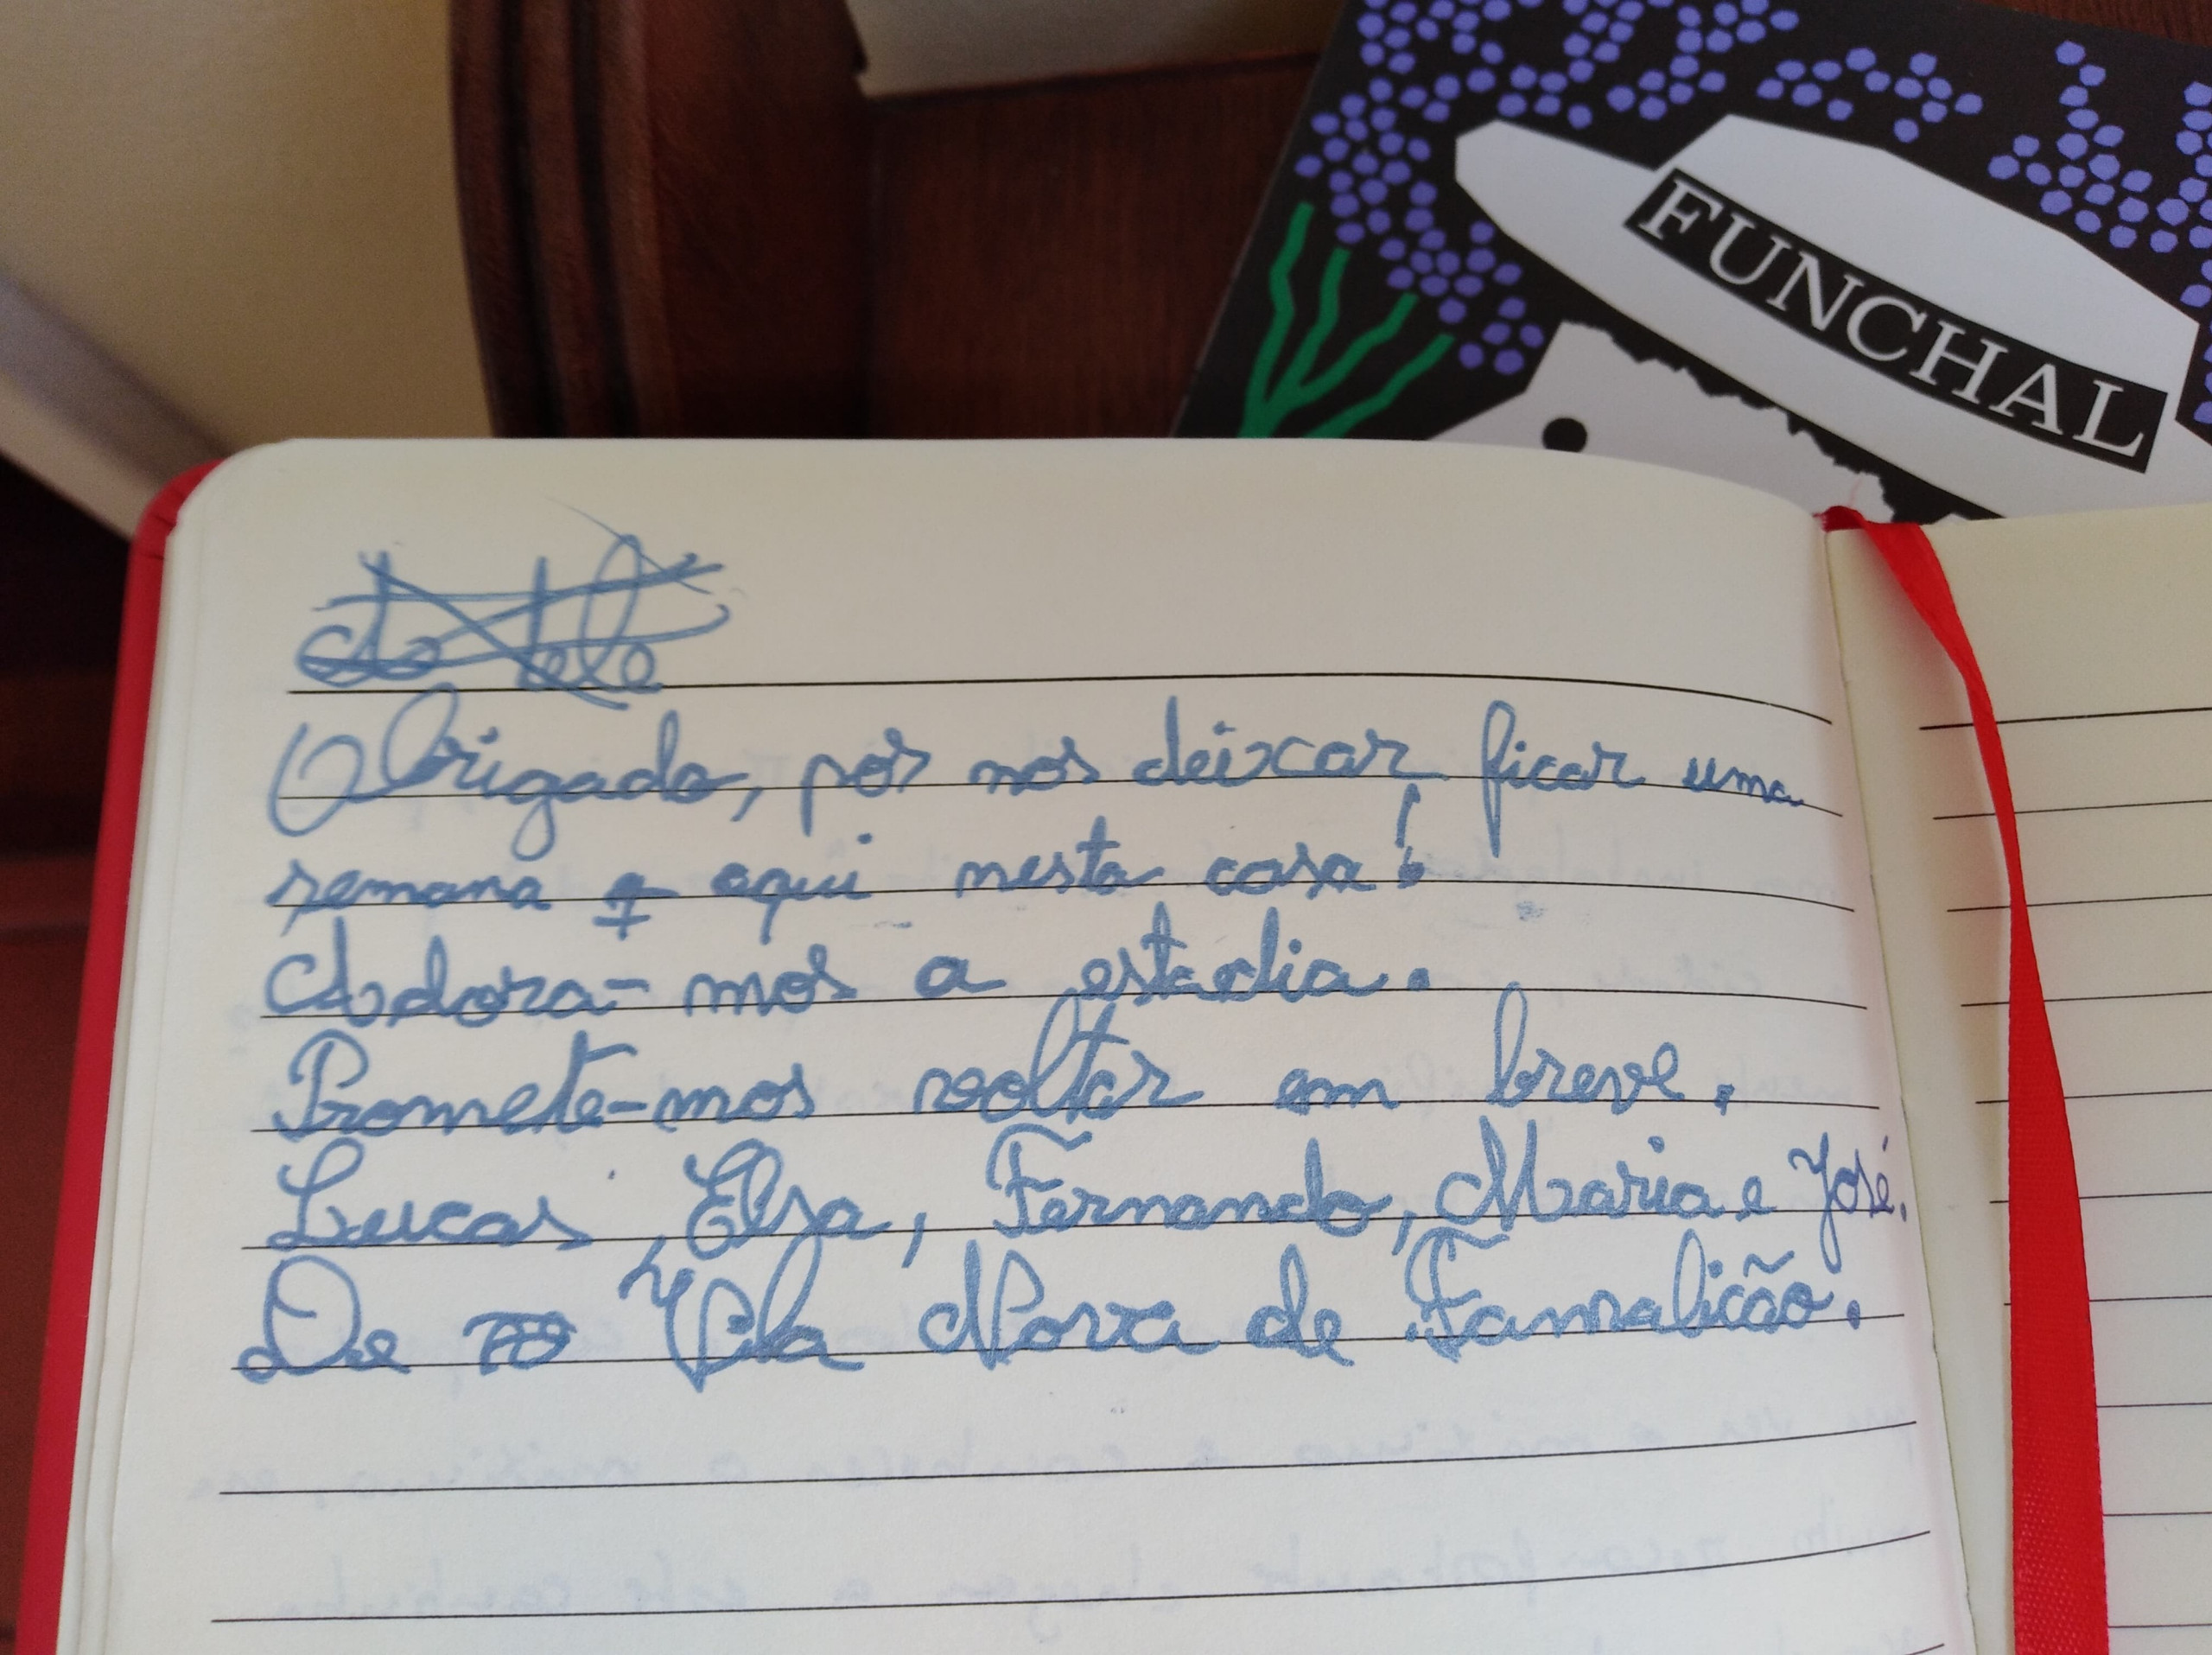 FUNCHAL
Obrigado, por nos deixar ficar uma
semana q aqui nesta casa!
Adora-mos a estadia.
Promete-mos voltar em breve.
Lucas, Elsa, Fernando, Maria e José.
De Vila Nova de Famalicão.